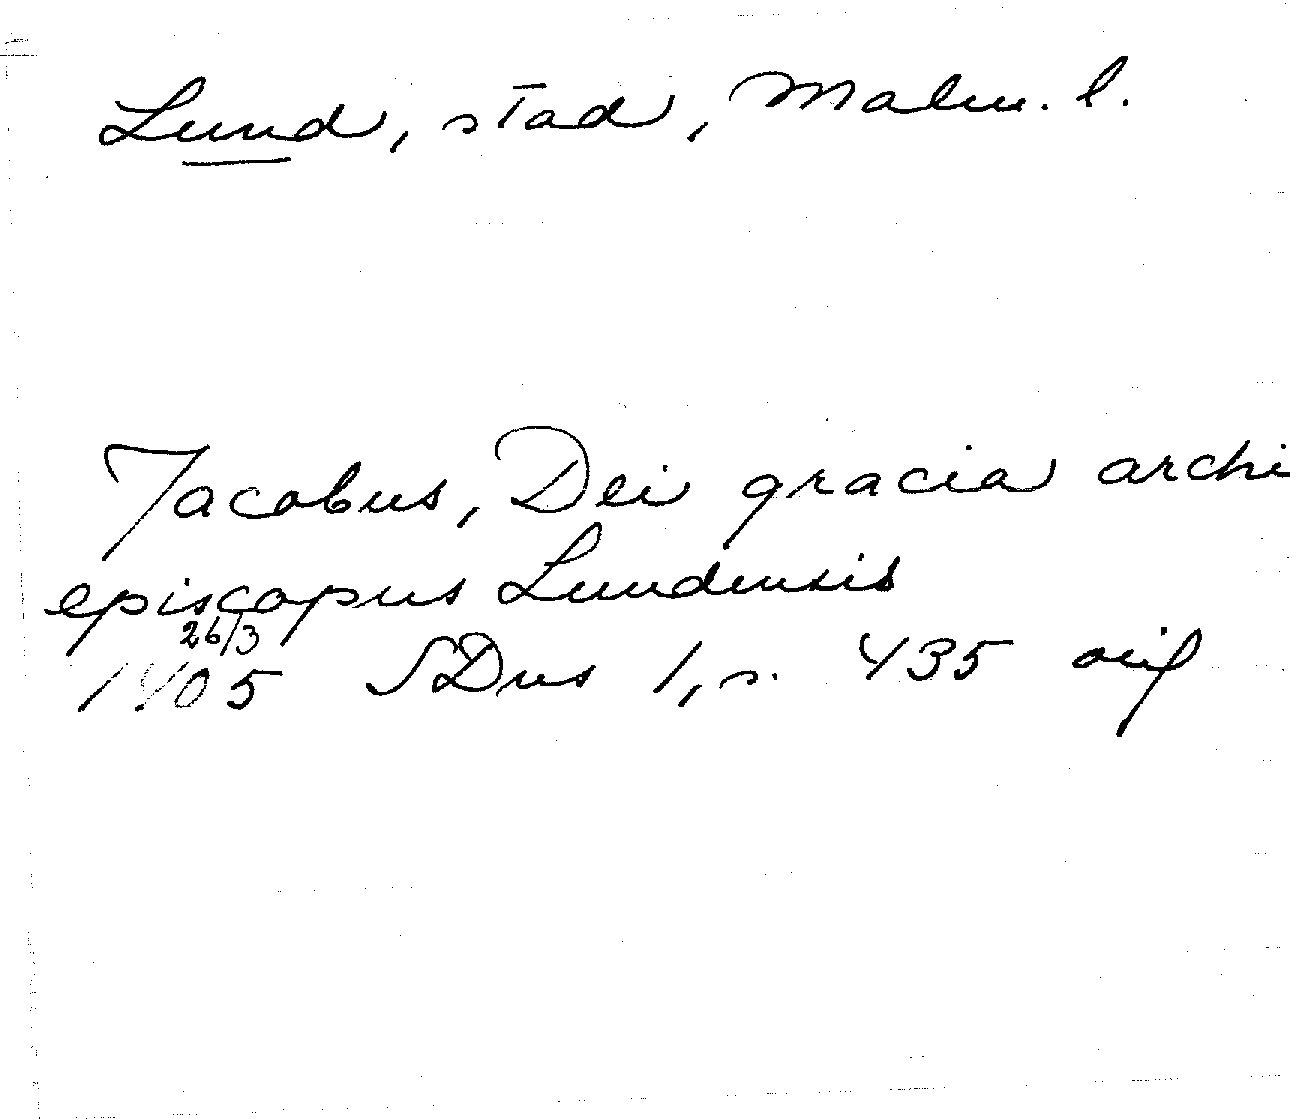 Lund, stad, Malm. l.
Jacobus, Dei gracia archi
episcopus Lundensis
26/3
1405 SDns 1, s. 435 oif